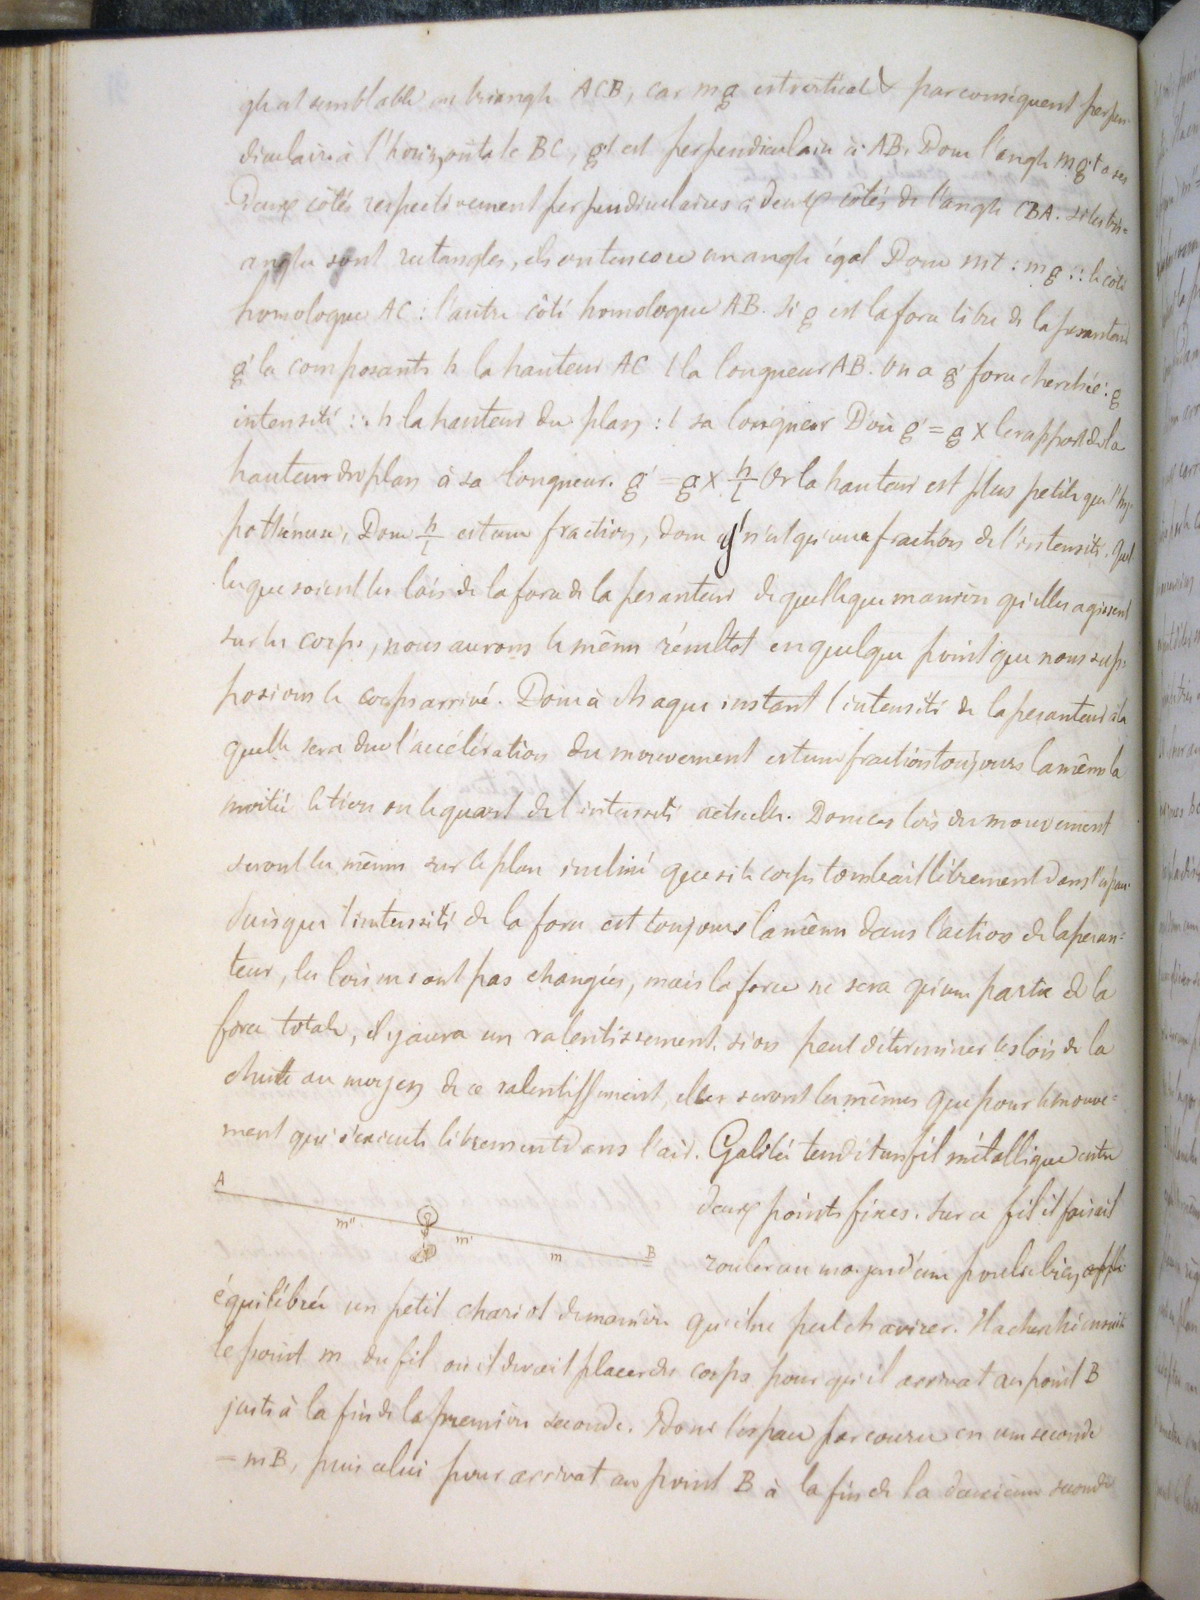 gle est semblable au triangle ACB, car mg est vertical & par conséquent perpen-
diculaire à l'horizontale BC, g't est perpendiculaire à AB. Donc l'angle mg't a ses
Deux côtés respectivement perpendiculaires à deux côtés de l'angle CBA. Si les tri=
angles sont rectangles, ils ont encore un angle égal Donc mt : mg :: le côté
homologue AC : l'autre côté homologue AB. Si g est la force libre de la pesanteur
g' la composante h la hauteur AC l la longueur AB. On a g' force cherchée : g
intensité :: h la hauteur du plan : l sa longueur D'où g' = g x le rapport de la
hauteur du plan à sa longueur. g' = g x h/l Or la hauteur est plus petite que l'hy-
pothénuse, Donc h/l est une fraction, donc g' n'est qu'une fraction de l'intensité. Quel
les que soient les lois de la force de la pesanteur de quelle que manière qu'elles agissent
sur les corps, nous aurons le même résultat en quelque point que nous sup-
posions le corps arrivé. Donc à chaque instant l'intensité de la pesanteur à la
quelle sera due l'accélération du mouvement est une fraction toujours la même la
moitié le tiers ou le quart de l'intensité actuelle. Donc ces lois du mouvement
seront les mêmes sur le plan incliné que si le corps tombait librement dans l'espace
Puisque l'intensité de la force est toujours la même dans l'action de la pesan=
teur, les lois ne sont pas changées, mais la force ne sera qu'une partie de la
force totale, il y aura un ralentissement. si on peut déterminer les lois de la
chute au moyen de ce ralentissement, elles seront les mêmes que pour le mouve=
ment qui s'exécute librement dans l'air. Galilée tendit un fil métallique entre
deux points fixes. Sur ce fil il faisait
rouler au moyen d'une poulie bien
A m" m' m B
équilibrée un petit chariot de manière qu'il ne peut chavirer. Il a cherché ensuite
le point m du fil où il devait placer des corps pour qu'il arrivat au point B
juste à la fin de la première seconde. Donc l'espace parcouru en une seconde
= mB, puis celui pour arrivat au point B à la fin de la deuxième seconde